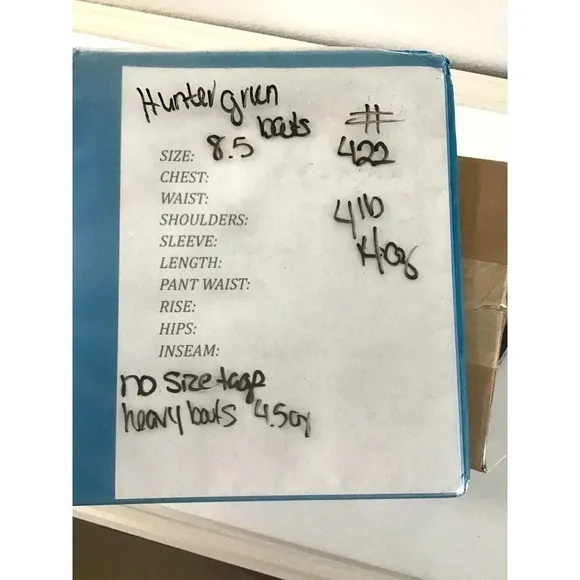 Hunter green
boots #
SIZE: 8.5 422
CHEST:
WAIST:
SHOULDERS: 4 lb
SLEEVE:
LENGTH:
PANT WAIST:
RISE:
HIPS:
INSEAM:
no size tags
heavy boots